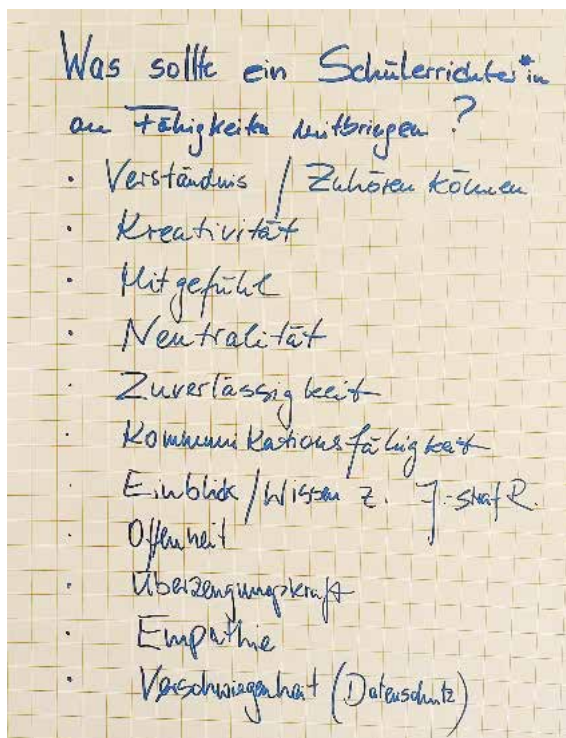 Was sollte ein Schülerrichter*in
an Fähigkeiten mitbringen?
· Verständnis / Zuhören können
· Kreativität
· Mitgefühl
· Neutralität
· Zuverlässigkeit
· Kommunikationsfähigkeit
· Einblick / Wissen z. J-straf R.
· Offenheit
· Überzeugungskraft
· Empathie
· Verschwiegenheit (Datenschutz)